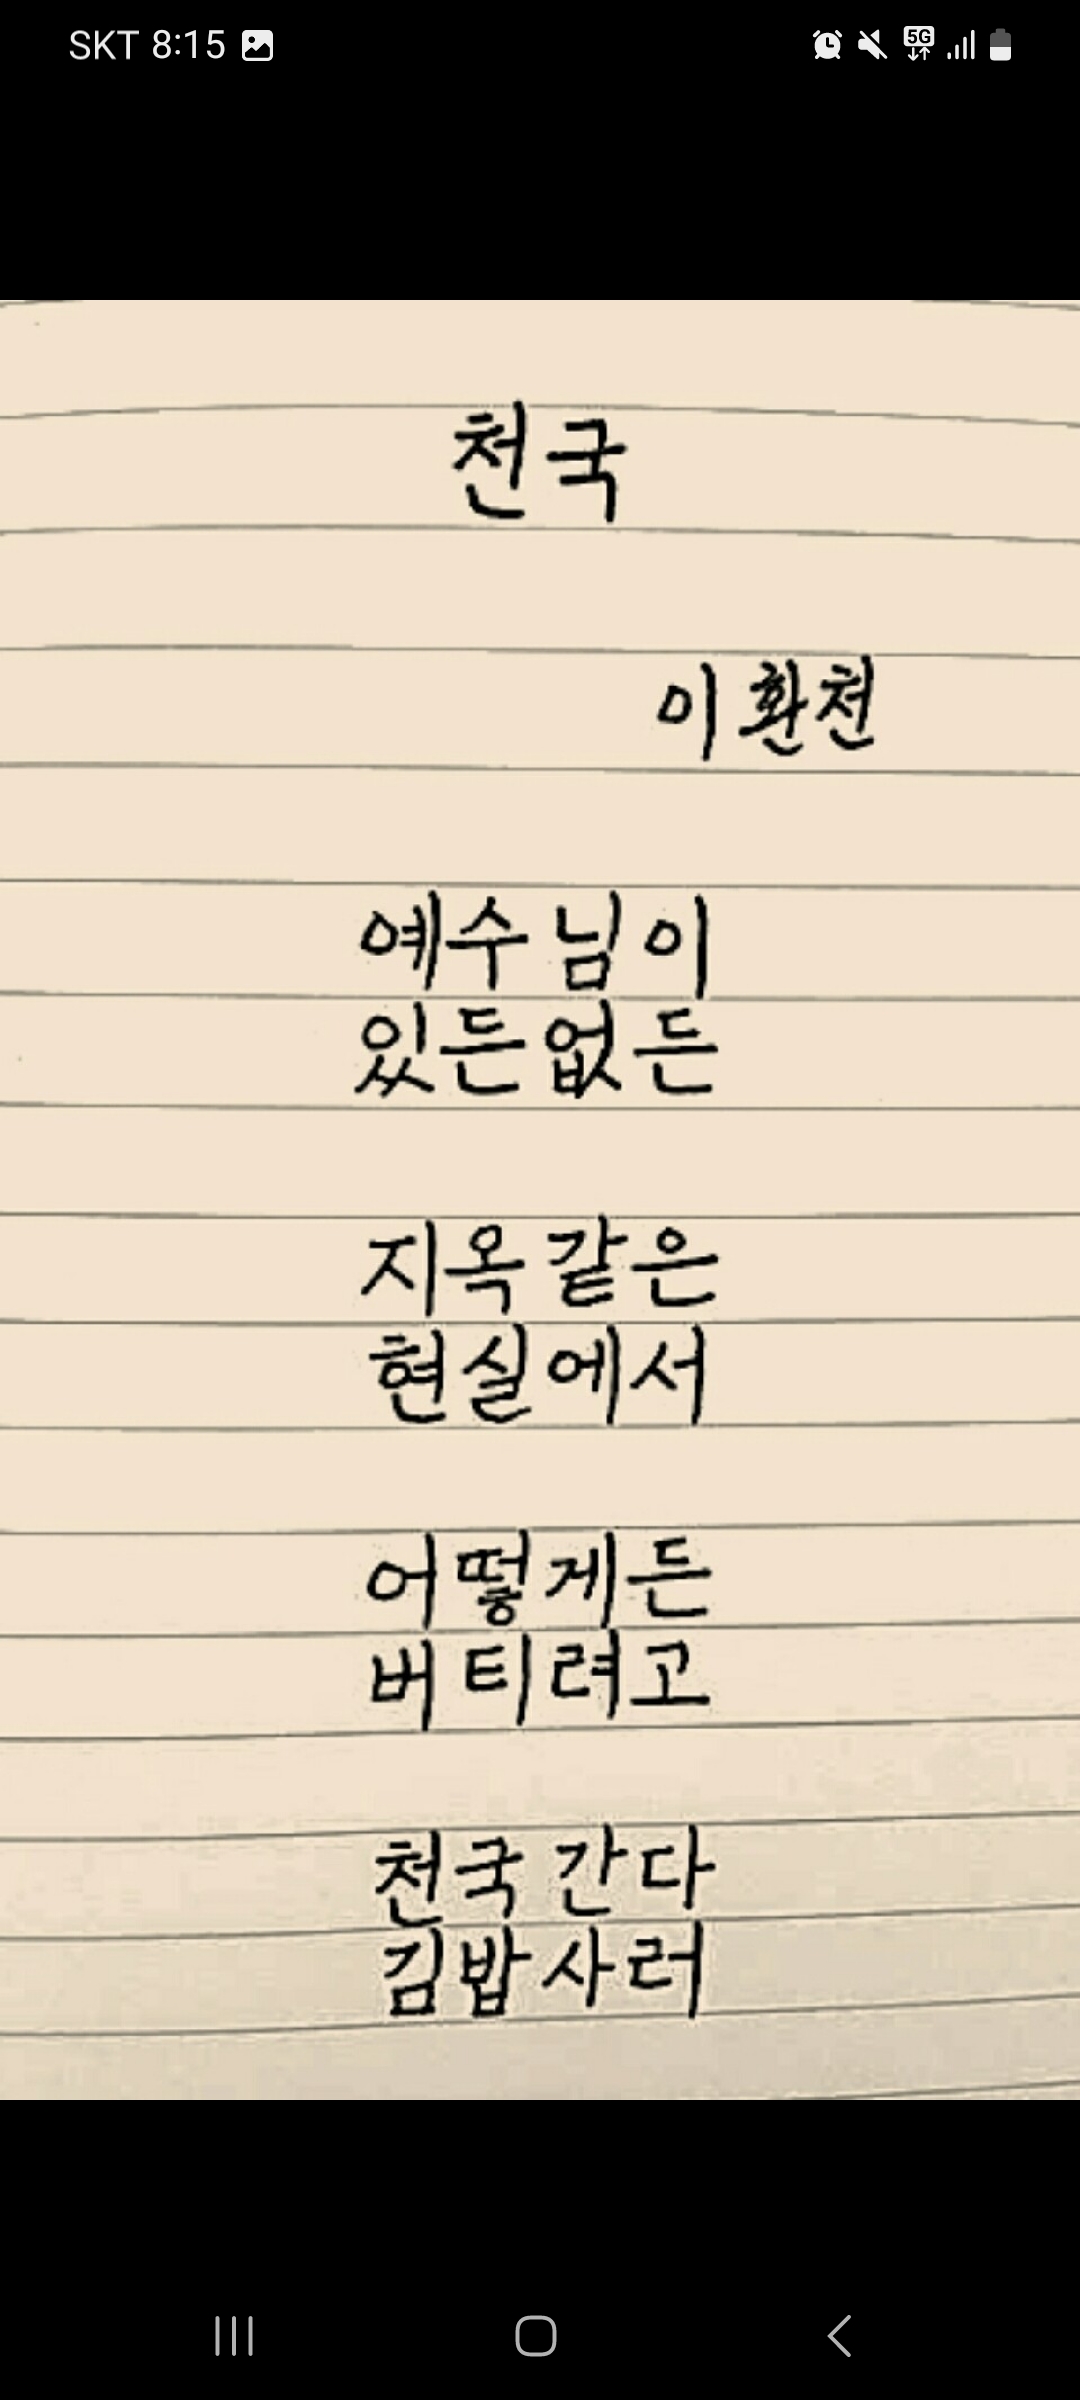 SKT 8:15
5G
천국
이환천
예수님이
있든없든
지옥같은
현실에서
어떻게든
버티려고
천국간다
김밥사러